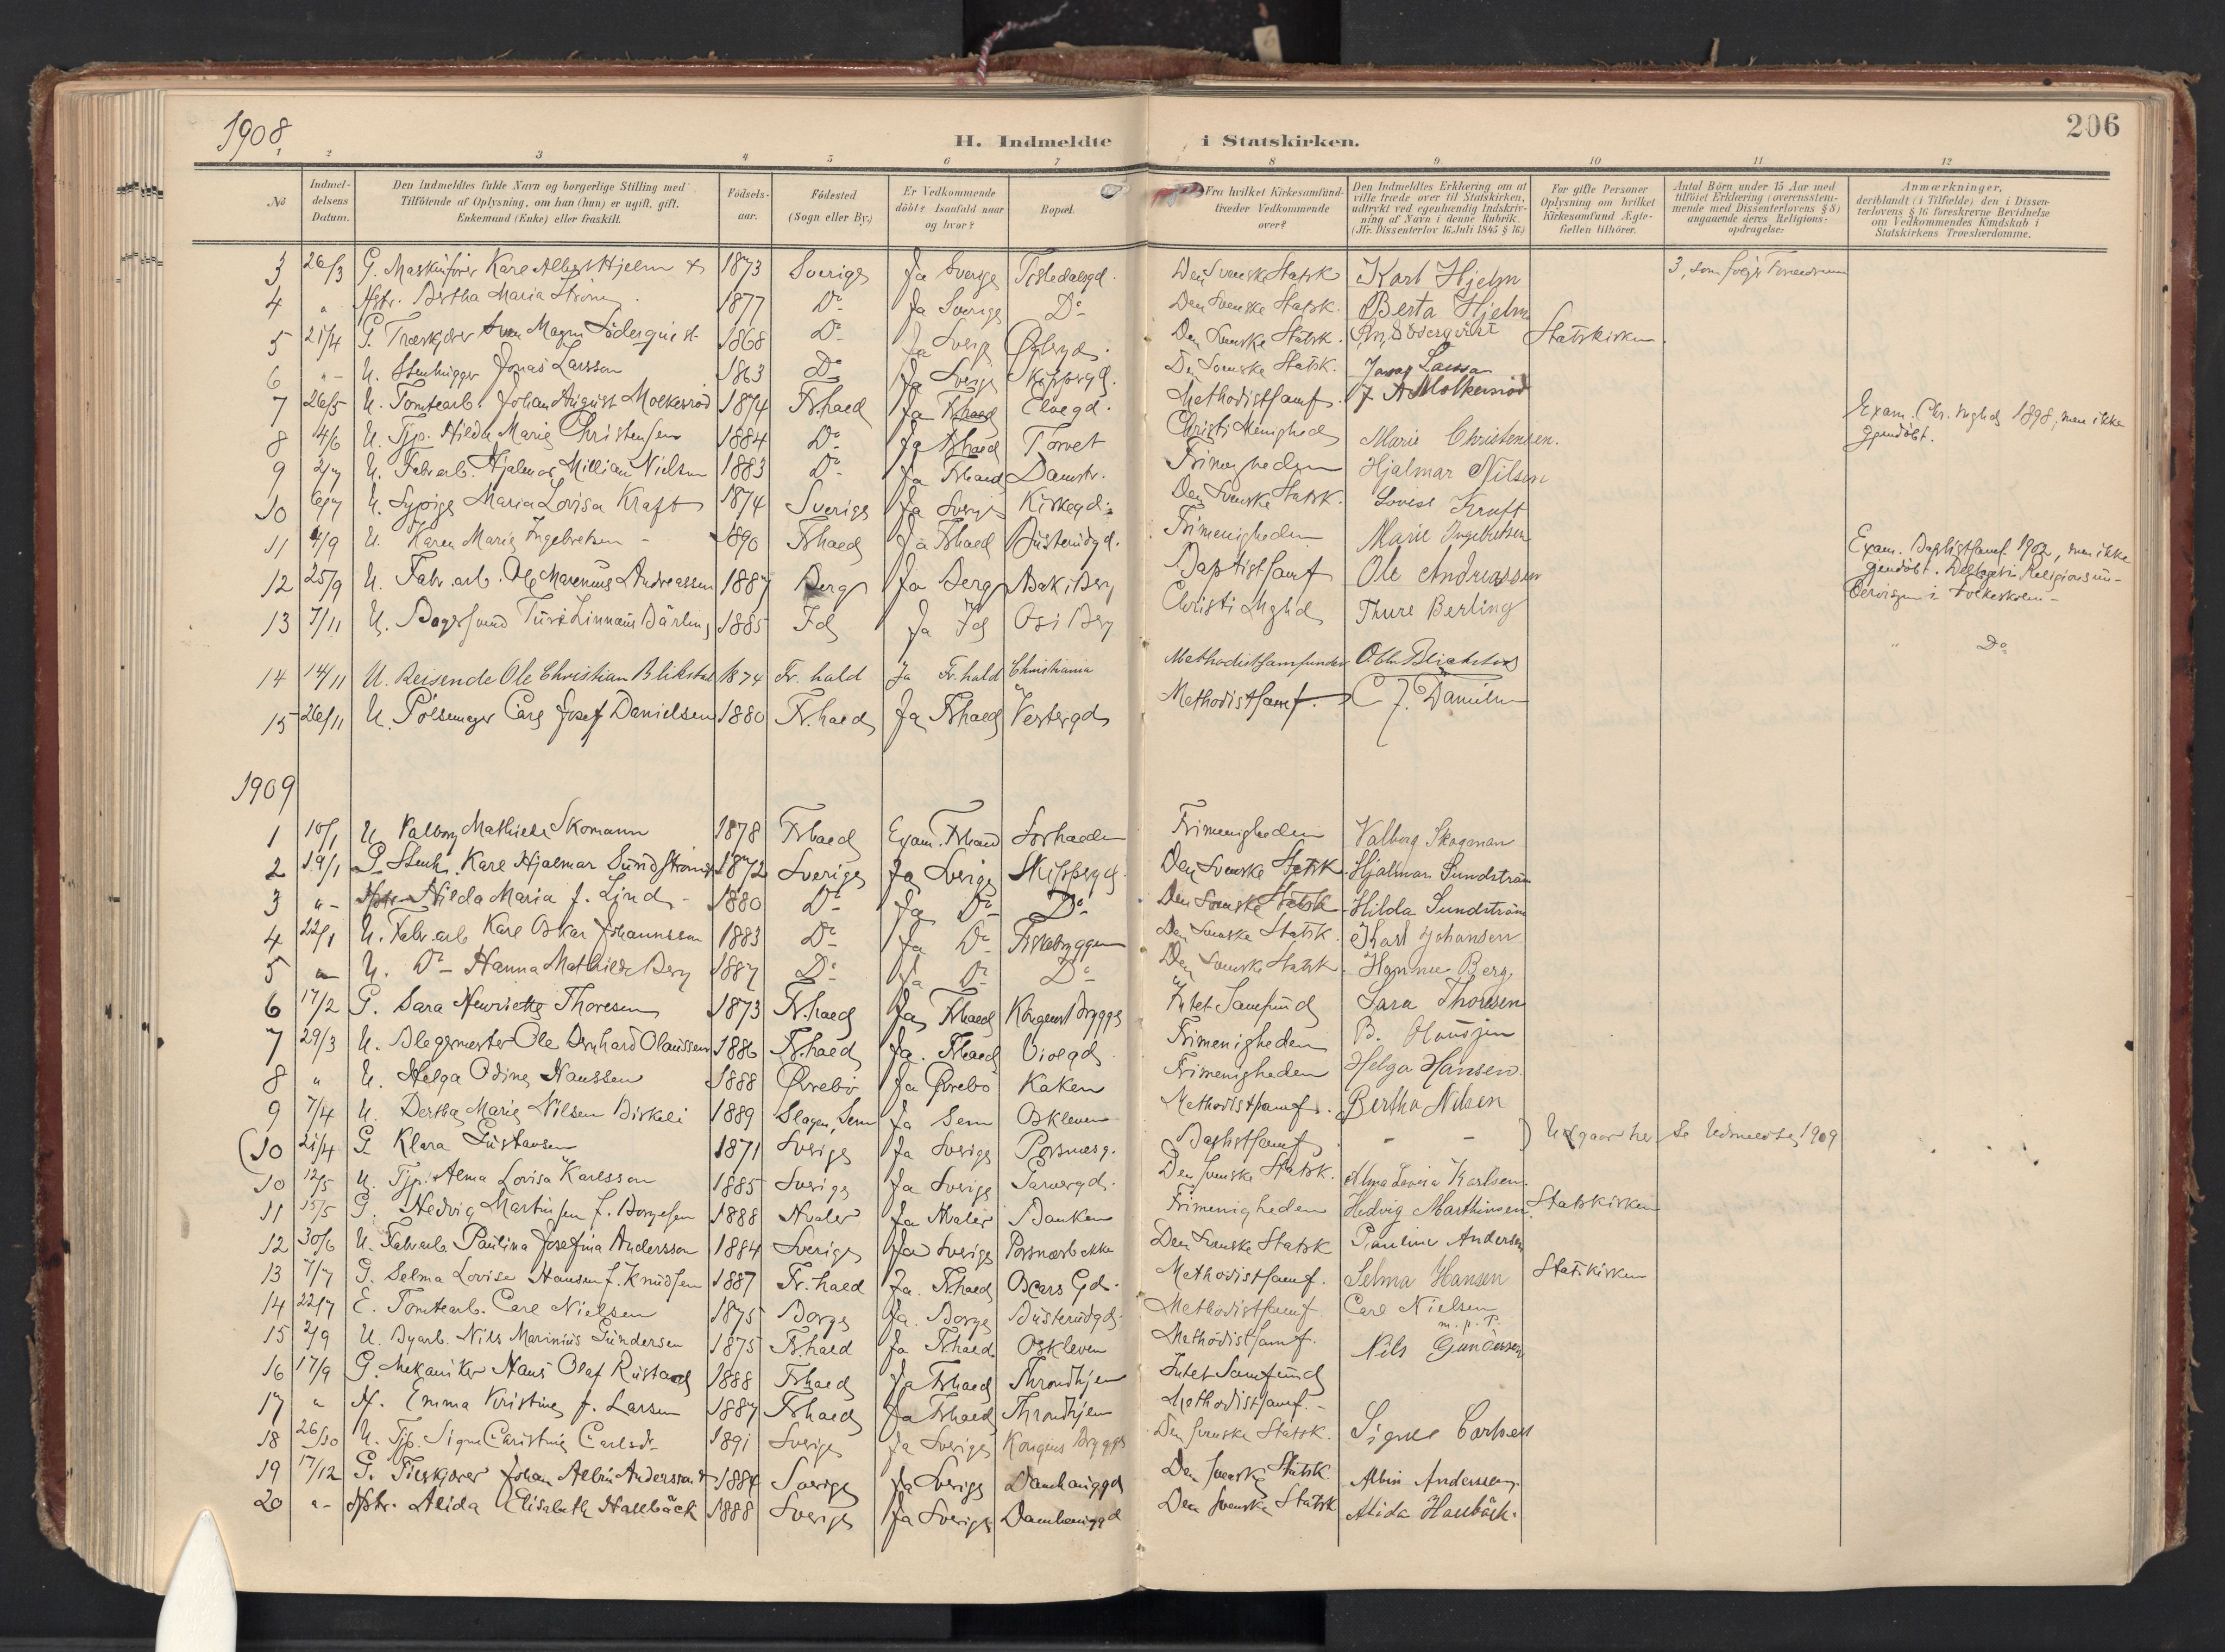 1908
H. Indmeldte i Statskirken.
206
1 2 3 4 5 6 7 8 9 10 11 12
No
Indmeldelsens Datum.
Den Indmeldtes fulde Navn og borgerlige Stilling med Tilföiende af Oplysning, om han (hun) er ugift, gift. Enkemand (Enke) eller fraskilt.
Födselsaar.
Födested (Sogn eller By.)
Er Vedkommende döbt? Isaafald naar og hvor?
Bopæl.
Fra hvilket Kirkesamfund træder Vedkommende over?
Den Indmeldtes Erklæring om at ville træde over til Statskirken, udtrykt ved egenhændig Indskrivning af Navn i denne Rubrik. (Jfr. Dissenterlov 16 Juli 1845 § 16)
For gifte Personer Oplysning om hvilket Kirkesamfund Ægtefællen tilhörer.
Antal Börn under 15 Aar med tilföiet Erklæring (overensstemmende med Dissenterlovens § 8) angaaende deres Religionsopdragelse:
Anmærkninger, deriblandt (i Tilfælde) den i Dissenterlovens § 16 foreskrevne Bevidnelse om Vedkommendes Kundskab i Statskirkens Troeslærdomme.
3 26/3 G. Maskinförer Karl Albert Hjelm 1873 Sverige Ja Sverige Tistedalsgd. Den Svenske Statsk Karl Hjelm 3, som følger Forældrene
4 " Hstr. Bertha Maria Ström 1877 Do Ja Sverige Do Den Svenske Statsk. Berta Hjelm
5 21/4 G. Træskjærer Sven Magnus Söderquist 1868 Do Ja Sverige Øbergd. Den Svenske Statsk. Söderqvist Statskirken.
6 " U. Stenhugger Jonas Larsson 1863 Do Ja Sverige Skippergd. Den Svenske Statsk. Jonas Larsson
7 26/5 U. Tomtearb. Johan August Molkersröd 1874 Fr.hald Ja Frhald Elvegd. Methodistsamf. J A Molkersröd
8 4/6 U. Tjp. Hilda Marie Christensen 1884 Do Ja Frhald Torvet Christi Menighed Marie Christensen. Exam. Chr. mghd 1898, men ikke gjendöbt.
9 2/7 U. Fabr.arb. Hjalmar Millian Nielsen 1883 Do Ja Frhald Damstr. Frimenigheden Hjalmar Nilsen
10 6/7 U. Sypige Maria Lovisa Kraft 1874 Sverige Ja Sverige Kirkegd. Den Svenske Statsk. Lovise Kraft
11 4/9 U. Karen Marie Ingebretsen 1890 Frhald Ja Frhald Busterudgd. Frimenigheden Marie Ingebretsen
12 25/9 U. Fabr.arb. Ole Marenius Andreassen 1887 Berg Ja Berg Bak i Berg Baptistsamf Ole Andreassen Exam. Baptistsamf. 1902, men ikke gjendöbt. Deltaget i Religionsundervisn. i Folkeskolen
13 7/11 U. Bagersvend Ture Linnaus Bärling 1885 Id Ja Id Os i Berg Christi Mghd Thure Berling " Do
14 14/11 U. Reisende Ole Christian Blikstad 1874 Fr. hald Ja Fr. hald Christiania Methodistsamfundet O. Chr. Blichstad
15 26/11 U. Pölsemager Carl Josef Danielsen 1880 Fr.hald Ja Frhald Vestergd. Methodistsamf. C J. Danielsen
1909
1 10/1 U Valborg Mathilde Skomann 1878 Frhald Exam. Frhald Sorhalden Frimenigheden Valborg Skogman
2 19/1 G. Stenh. Karl Hjalmar Sundström 1872 Sverige Ja Sverige Skippergd. Den Svenske Statsk. Hjalmar Sundström
3 " Hstr. Hilda Maria f. Lind 1880 Do Ja Do Do Den Svenske Statsk Hilda Sundström
4 22/1 U. Fabr.arb Karl Oskar Johannsson 1883 Do Ja Do Fiskebryggen Den Svenske Statsk Karl Johansen
5 " U. Do Hanna Mathilde Berg 1887 Do Ja Do Do Den Svenske Statsk. Hanna Berg
6 17/2 G. Sara Henriette Thoresen 1873 Fr.hald Ja Frhald Kongens Brygge Intet Samfund Sara Thoresen
7 29/3 U. Blegermester Ole Bernhard Olaussen 1886 Fr.hald Ja. Frhald Violgd Frimenigheden B. Olausjen
8 " U. Helga Odine Hanssen 1888 Øvrebö Ja Øvrebö Kaken Frimenigheden Helga Hansen.
9 7/4 U. Bertha Marie Nilsen Birkeli 1889 Slagen, Sem Ja Sem Oskleven Methodistsamf. Bertha Nilsen
(10 21/4 G. Klara Gustavsen 1871 Sverige Ja Sverige Porsnesg. Baptistsamf. - - ) Udgaar her Se Udmeldte 1909
10 12/5 U. Tjp. Alma Lovisa Karlsson 1885 Sverige Ja Sverige Garvergd. Den Svenske Statsk. Alma Lovisa Karlsen.
11 15/5 G. Hedvig Martinsen f. Borgesen 1888 Hvaler Ja Hvaler Banken Frimenigheden Hedvig Marthinsen. Statskirken
12 30/6 U. Fabrarb. Paulina Josefina Andersson 1884 Sverige Ja Sverige Porsnæsbakke Den Svenske Statsk Pauline Andersen
13 7/7 G. Selma Lovise Hansen f. Knudsen 1887 Fr.hald Ja. Frhald Oscars Gd. Methodistsamf. Selma Hansen Statskirken
14 22/7 E. Tomtearb. Carl Nielsen 1875 Borge Ja. Borge Busterudgd. Methodistsamf. Carl Nielsen m. p. P.
15 2/9 U. Byarb. Nils Marinius Gundersen 1875 Fr.hald Ja Frhald Oskleven Methodistsamf. Nils Gundersen
16 17/9 G. Mekaniker Hans Olaf Rustad 1888 Frhald Ja Frhald Throndhjem Intet Samfund
17 " H. Emma Kristine f. Larsen 1887 Frhald Ja Frhald Throndhjem Methodistsamf.
18 26/10 U. Tjp. Signe Christine Carlsd. 1891 Sverige Ja Sverige Kongens Brygge Den Svenske Statsk. Signe Carlsen
19 17/12 G. Fileskjærer Johan Albin Andersson 1884 Sverige Ja Sverige Damhauggd Den Svenske Statsk Albin Anderssen
20 " Hstr. Alida Elisabeth Hallbäck 1888 Sverige Ja Sverige Damhauggd Den Svenske Statsk Alida Hallbäck.